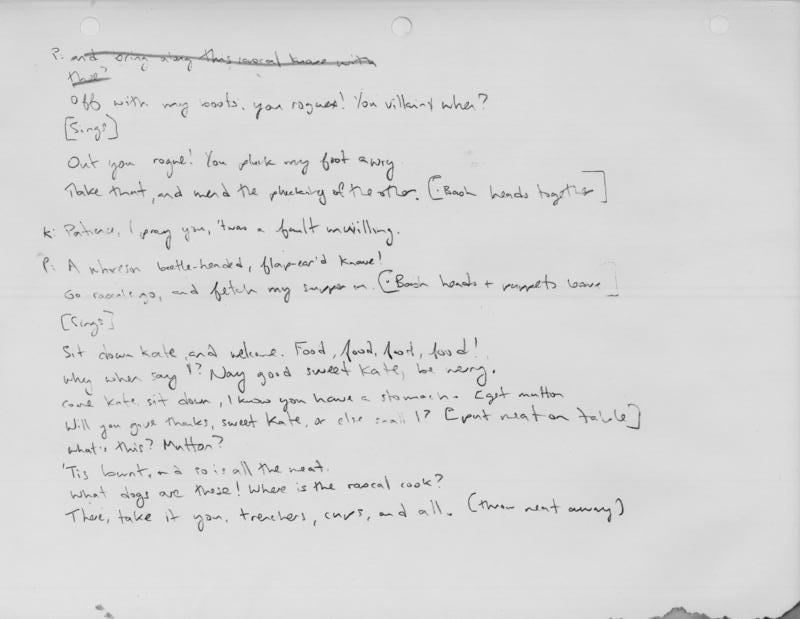 P: and bring along this rascal knave with
thee?
Off with my boots, you rogues! You villains when?
[Sings]
Out you rogue! You pluck my foot awry.
Take that, and mend the plucking of the other. [·Bash heads together]
K: Patience, I pray you, 'twas a fault unwilling.
P: A whoreson beetle-headed, flap-ear'd knave!
Go rascals go, and fetch my supper in. [·Bash heads + puppets leave]
[Sings]
Sit down Kate, and welcome. Food, food, food, food!
Why when say I? Nay good sweet Kate, be merry.
come Kate, sit down, I know you have a stomach. [get mutton
Will you give thanks, sweet Kate, or else shall I? [put meat on table]
What's this? Mutton?
'Tis burnt, and so is all the meat.
What dogs are these! Where is the rascal cook?
There, take it you, trenchers, cups, and all. (throw meat away)